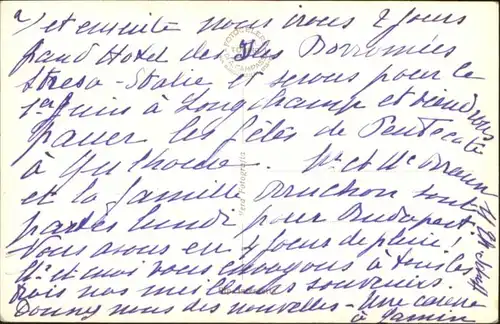 2) et ensuite nous irons 2 jours
Grand Hotel des Iles Borromées
Stresa - Italie et serons pour le
1er Juin à Longchamp et viendrons
passer les fêtes de Pentecôte
à
Mr et Me
et la famille Bruchon sont
partis lundi pour Budapest.
Nous avons eu 4 jours de pluie!
et moi vous envoyons à tous les
trois nos meilleurs souvenirs.
Donnez nous des nouvelles - Une caresse
à Jamin
Vera Fotografia